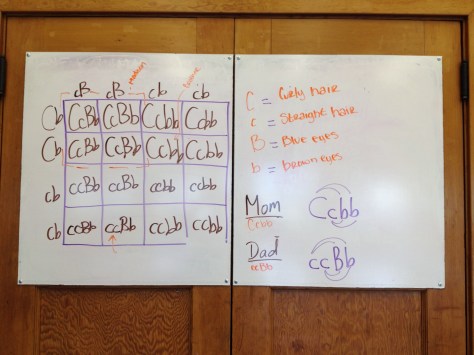 cB cB cb cb
Cb CcBb CcBb Ccbb Ccbb
Cb CcBb CcBb Ccbb Ccbb
cb ccBb ccBb ccbb ccbb
cb ccBb ccBb ccbb ccbb
C = Curly hair
c = Straight hair
B = Blue eyes
b = brown eyes
Mom Ccbb
Ccbb
Dad ccBb
ccBb